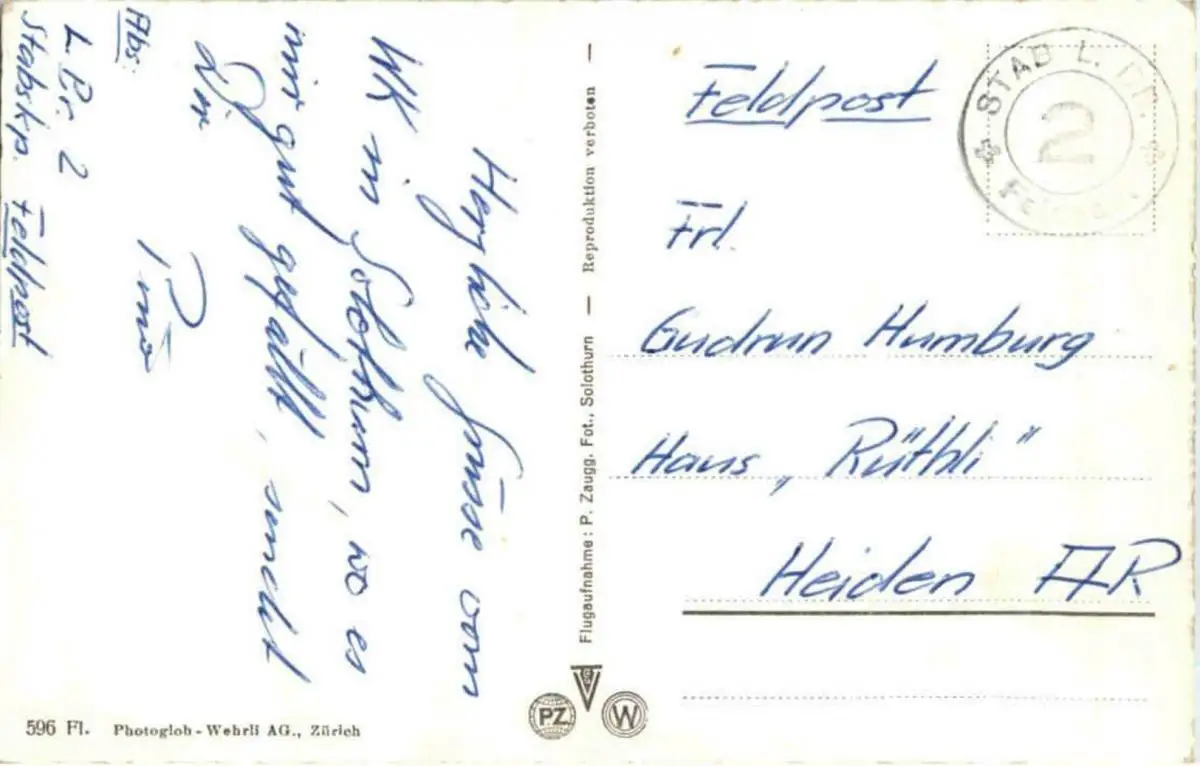 Herzliche Grüsse vom
WK in Solothurn, wo es
mir gut gefällt, sendet
Dir
Abs:
L. Br. 2
Stabskp. Feldpost
Flugaufnahme: P. Zaugg, Fot., Solothurn — Reproduktion verboten —
Feldpost
STAB L. BR.
2
Frl.
Gudrun Humburg
Haus „Rüthli"
Heiden AR
PZ
W
596 Fl. Photoglob-Wehrli AG., Zürich